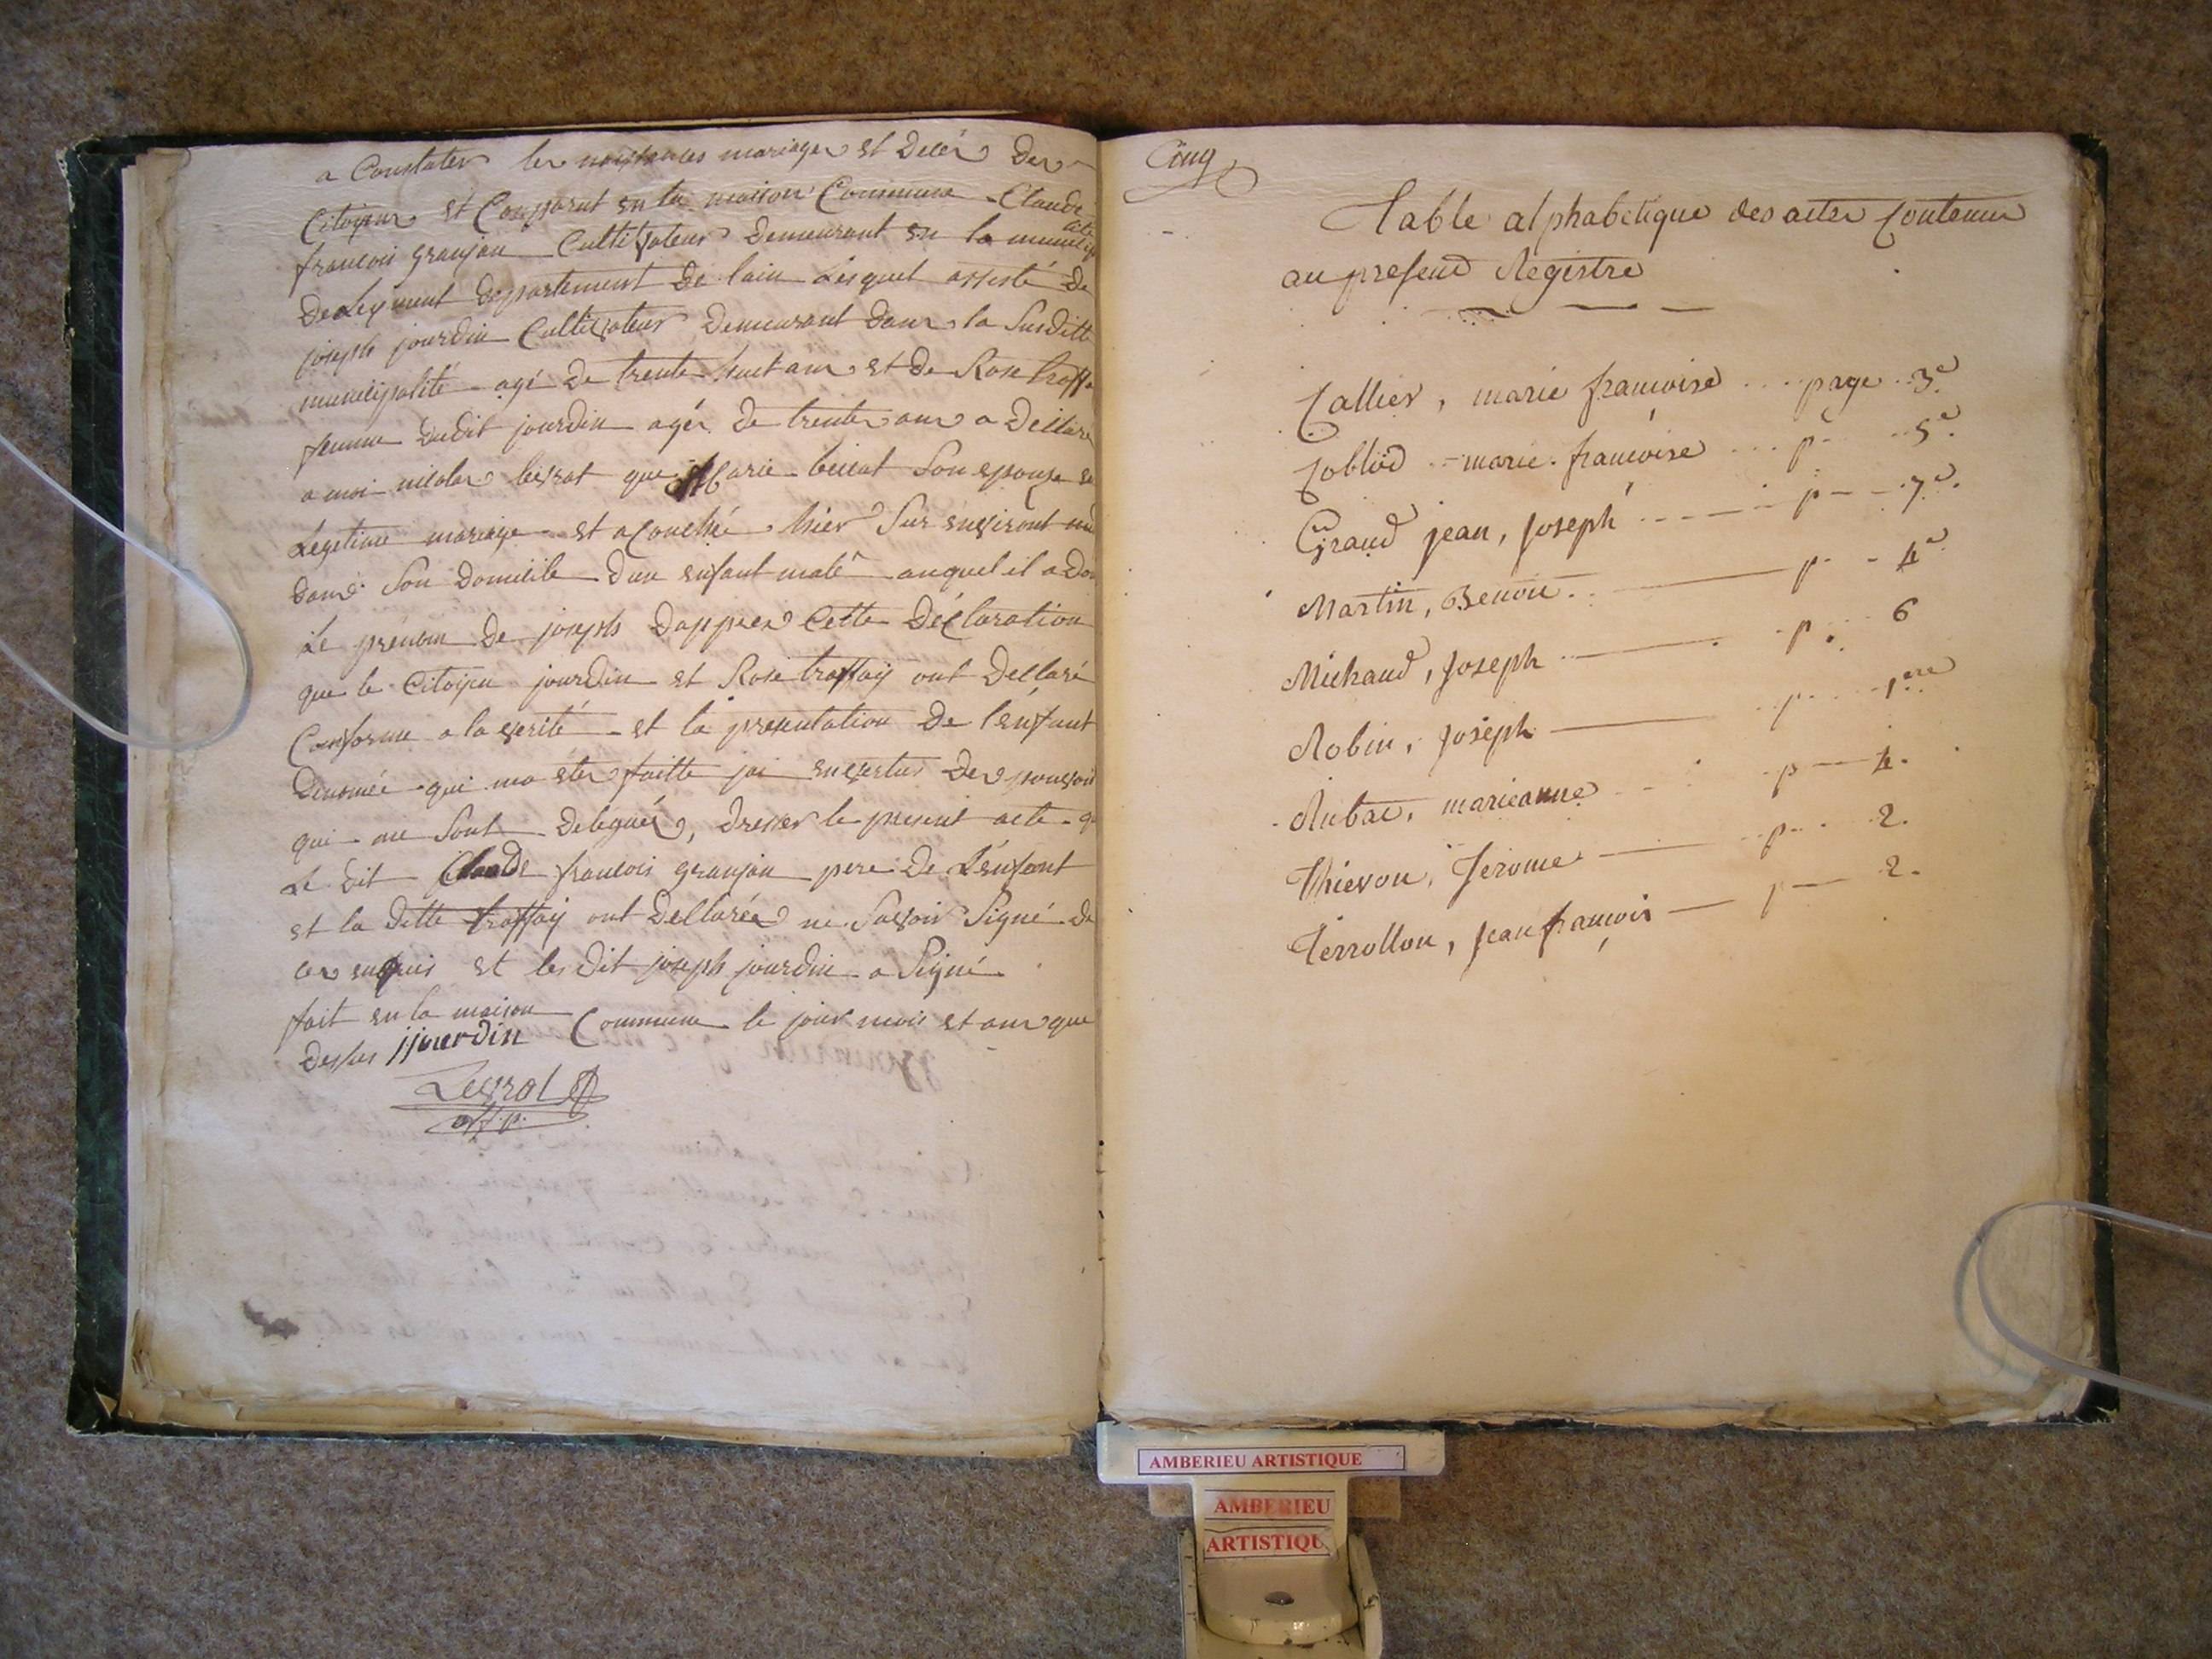 a Constater les naissances mariages et Decès Des
Citoyens et Comparut en la maison Commune Claude
françois granjan Cultivateur Demeurant en la municip
alité
De Leyment Departement De lain Lesquel assisté De
joseph jourdin Cultivateur Demeurant Dans la Susditte
municipalité agé De trente huit ans et de Rose
femme dudit jourdin agés De trente ans a Dellaré
a moi nicolas levrat que Marie Son epouse en
Legetime mariage est acouchée hier Sur environt
Dans Son Domicile Dun enfant malê auquel il a Don
Le prenom De joseph Dappres Cette Déclaration
que le Citoyen jourdin et Rose traffay ont Dellaré
Conforme a la verité et la presentation De lenfant
Denomée qui ma eter faitte jai envertus Des pouvoir
qui me Sont Delegués, Dresser le present acte q
Le Dit Claude francois granjan pere De Lenfant
et la Ditte traffay ont Dellarée ne Savoir Signé De
ces enquis et les Dit joseph jourdin a Signé
fait en la maison Commune le jour mois et ans que
Dessus jjourdin
Levrat
off. p.
Cinq
Table alphabetique des actes Contenus
au present Registre
Callier, marie francoise .... page 3e
Joblod marie francoise .... p 5e
Giraud jean, Joseph ---- p -- 7e.
Martin, Benoit. —— p. - 4e
Michaud, Joseph —— p. 6
Robin, Joseph —— p. 1ere
Rubat, marieanne p — 4.
Thievon, Jerome —— p. 2.
Terrollon, Jean françois — p — 2.
AMBERIEU ARTISTIQUE
AMBERIEU
ARTISTIQU